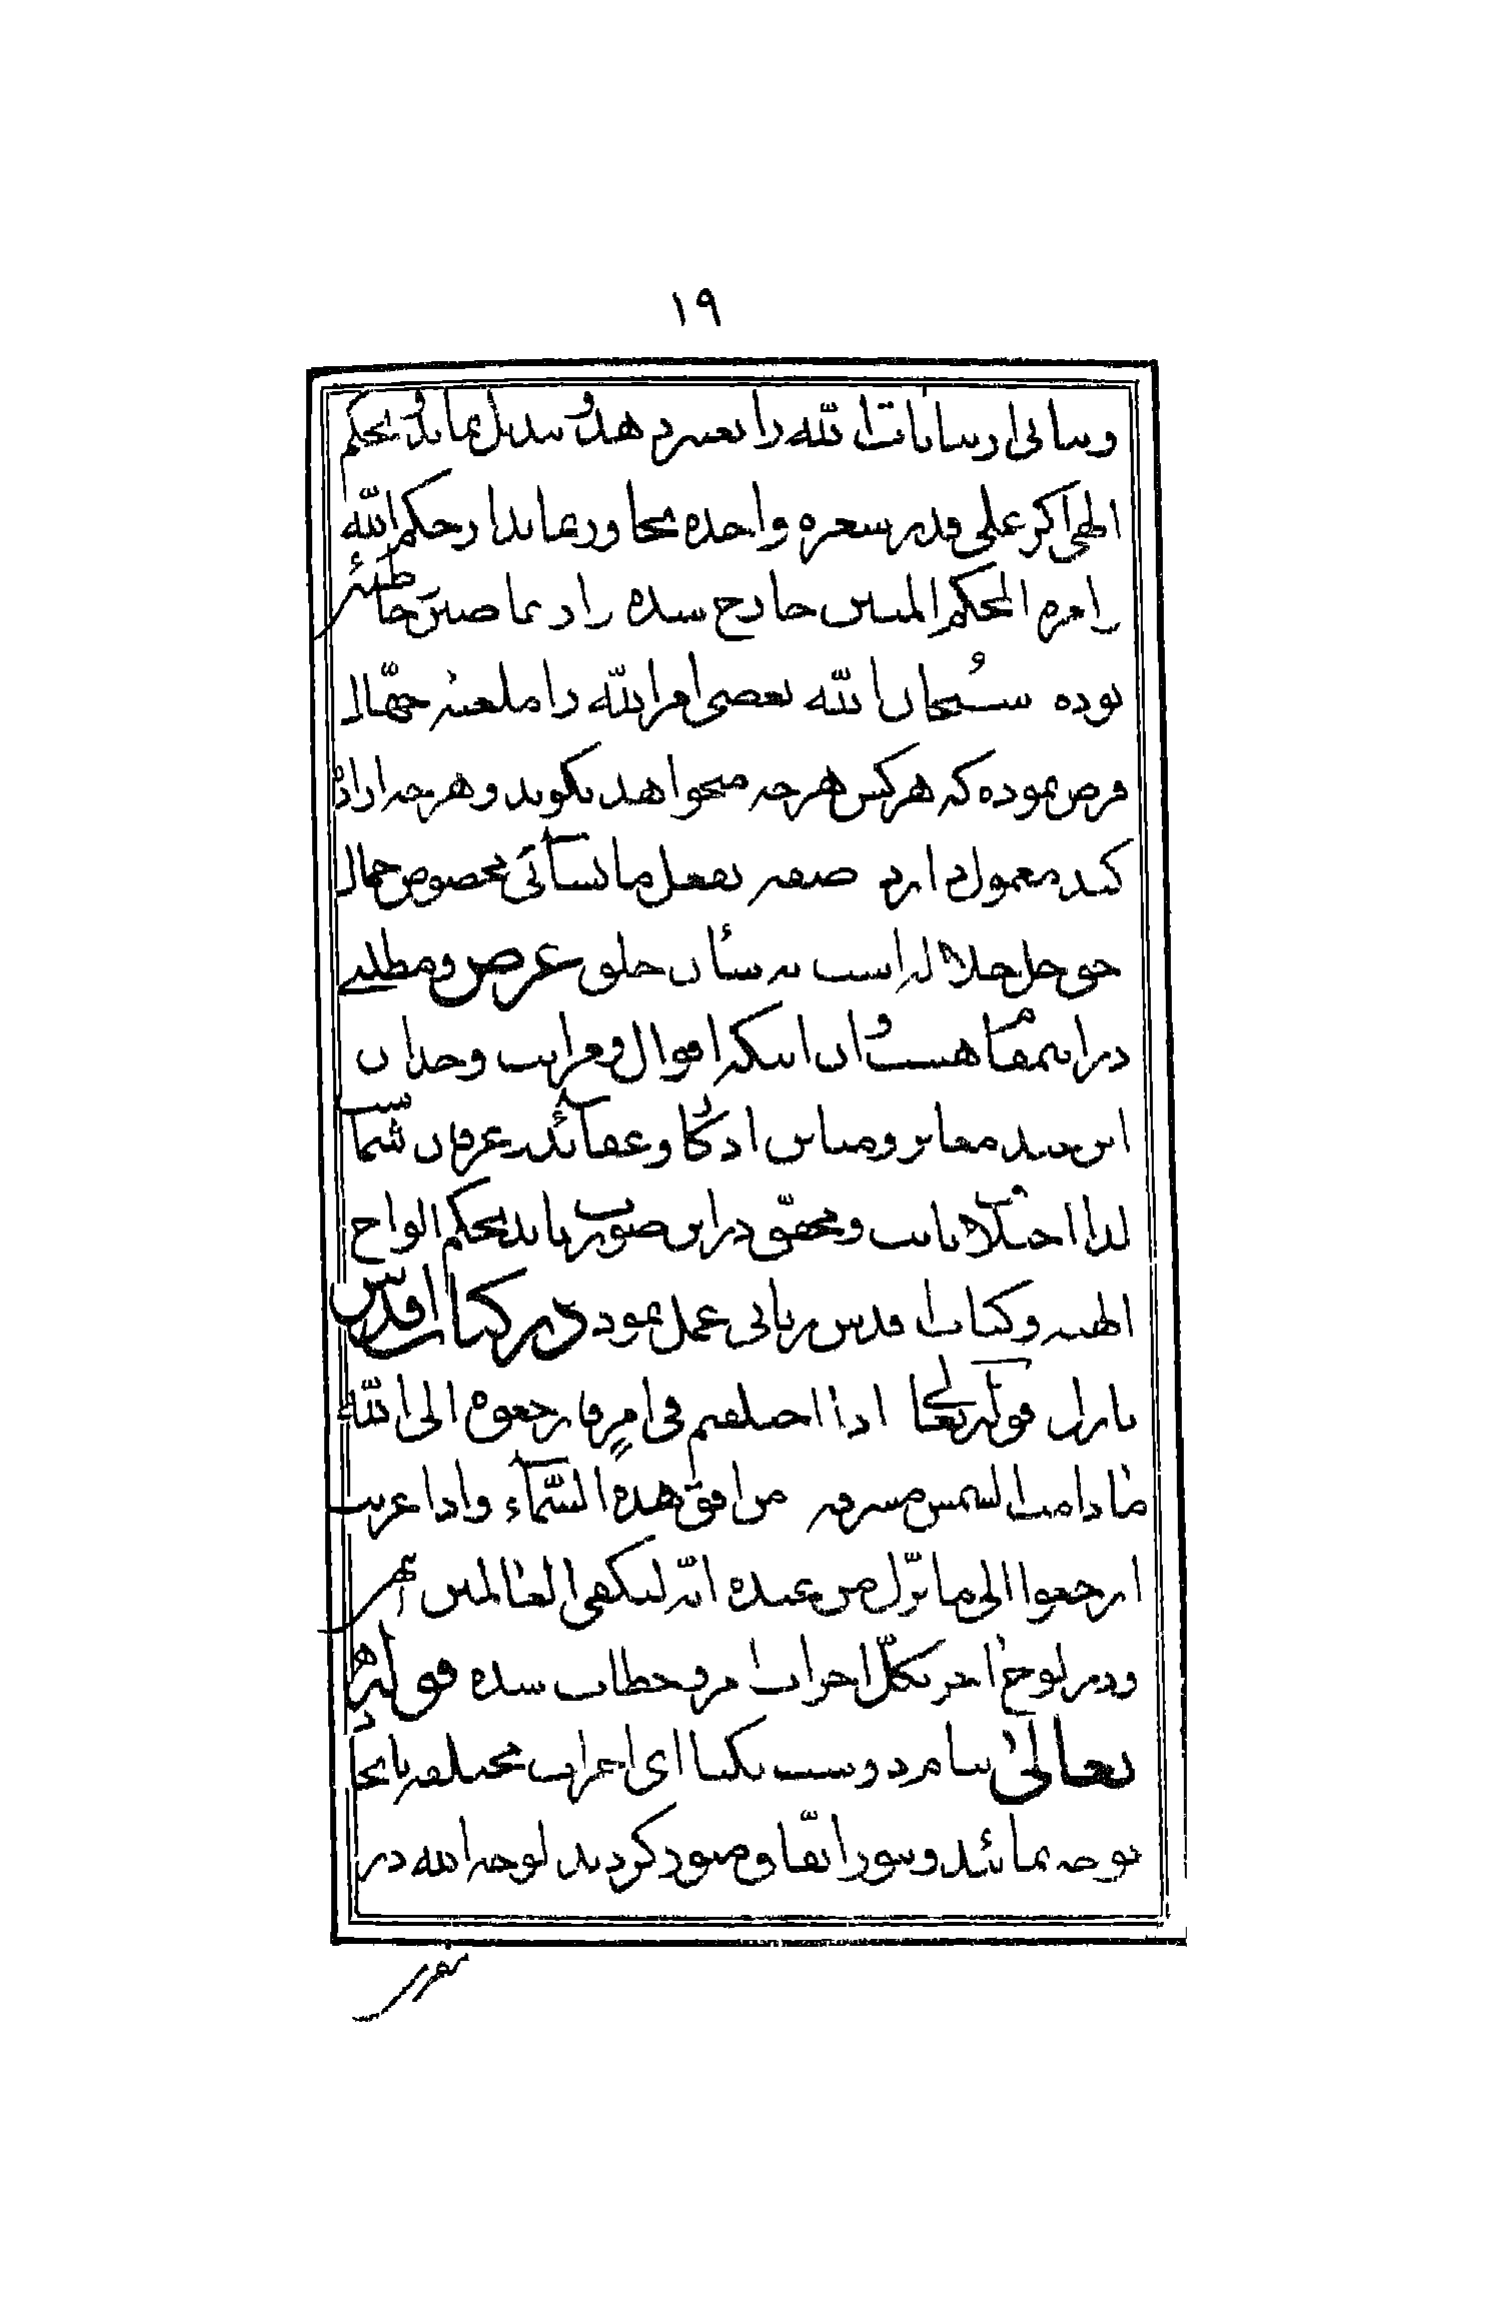 ١٩
و بیانی از بیانات الله را تغییر دهد و تبدیل نماید و بحکم
الهی اگر علی قدر شعره واحده تجاوز نماید از حکم الله
رامره المحکم المبین خارج شده زاد نماصین خاطئر
بوده سُبحان الله بعضی امر الله را ملعبه جهّال
فرض نموده که هر کس هر چه میخواهد بگوید و هر چه اراده
کند معمول دارد صفه یفعل ما یشآئی مخصوص جمال
حق جل جلاله است نه شأن خلق عرض و مطلبی
در این مقام هست و آن اینکه اقوال و مراتب وجدان
این عبد مغایر و مباین اذکار و عقائد و عرفان شماست
لذا اختلاف ثابت و محقّق در این صورت باید بحکم الواح
الهیه و کتاب اقدس ربانی عمل نمود در کتاب اقدس
نازل قوله تعالی اذا اختلفتم فی امرٍ فارجعوه الی الله
ما دامت الشمس مشرقه من افق هذه السّمآء و اذا غربت
ارجعوا الی ما نزّل من عنده انّه لیکفی العالمین انتهی
و در لوح آخر بکلّ احزاب امر و خطاب شده قوله
تعالی بنام دوست یکتا ای احزاب مختلفه باتحاد
توجه نمائید و بنور اتفاق منور گردید لوجه الله در
مقرر